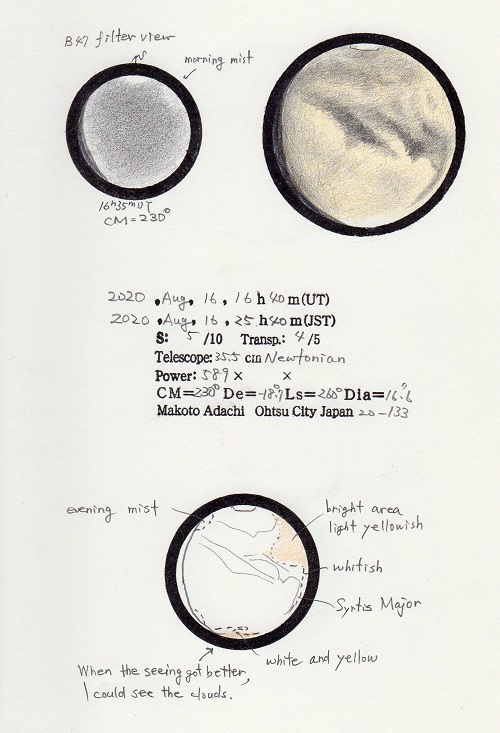 B47 filter view
↑S
morning mist
16h35mUT
CM=230°
2020 , Aug, 16 , 16 h 40 m(UT)
2020 , Aug, 16 , 25 h 40 m(JST)
S: 5 /10 Transp.: 4 /5
Telescope: 35.5 cm Newtonian
Power: 589 × ×
CM=230° De=-18.°7 Ls=260° Dia=16.″6
Makoto Adachi Ohtsu City Japan 20-133
evening mist
bright area
light yellowish
whitish
Syrtis Major
white and yellow
When the seeing got better,
I could see the clouds.